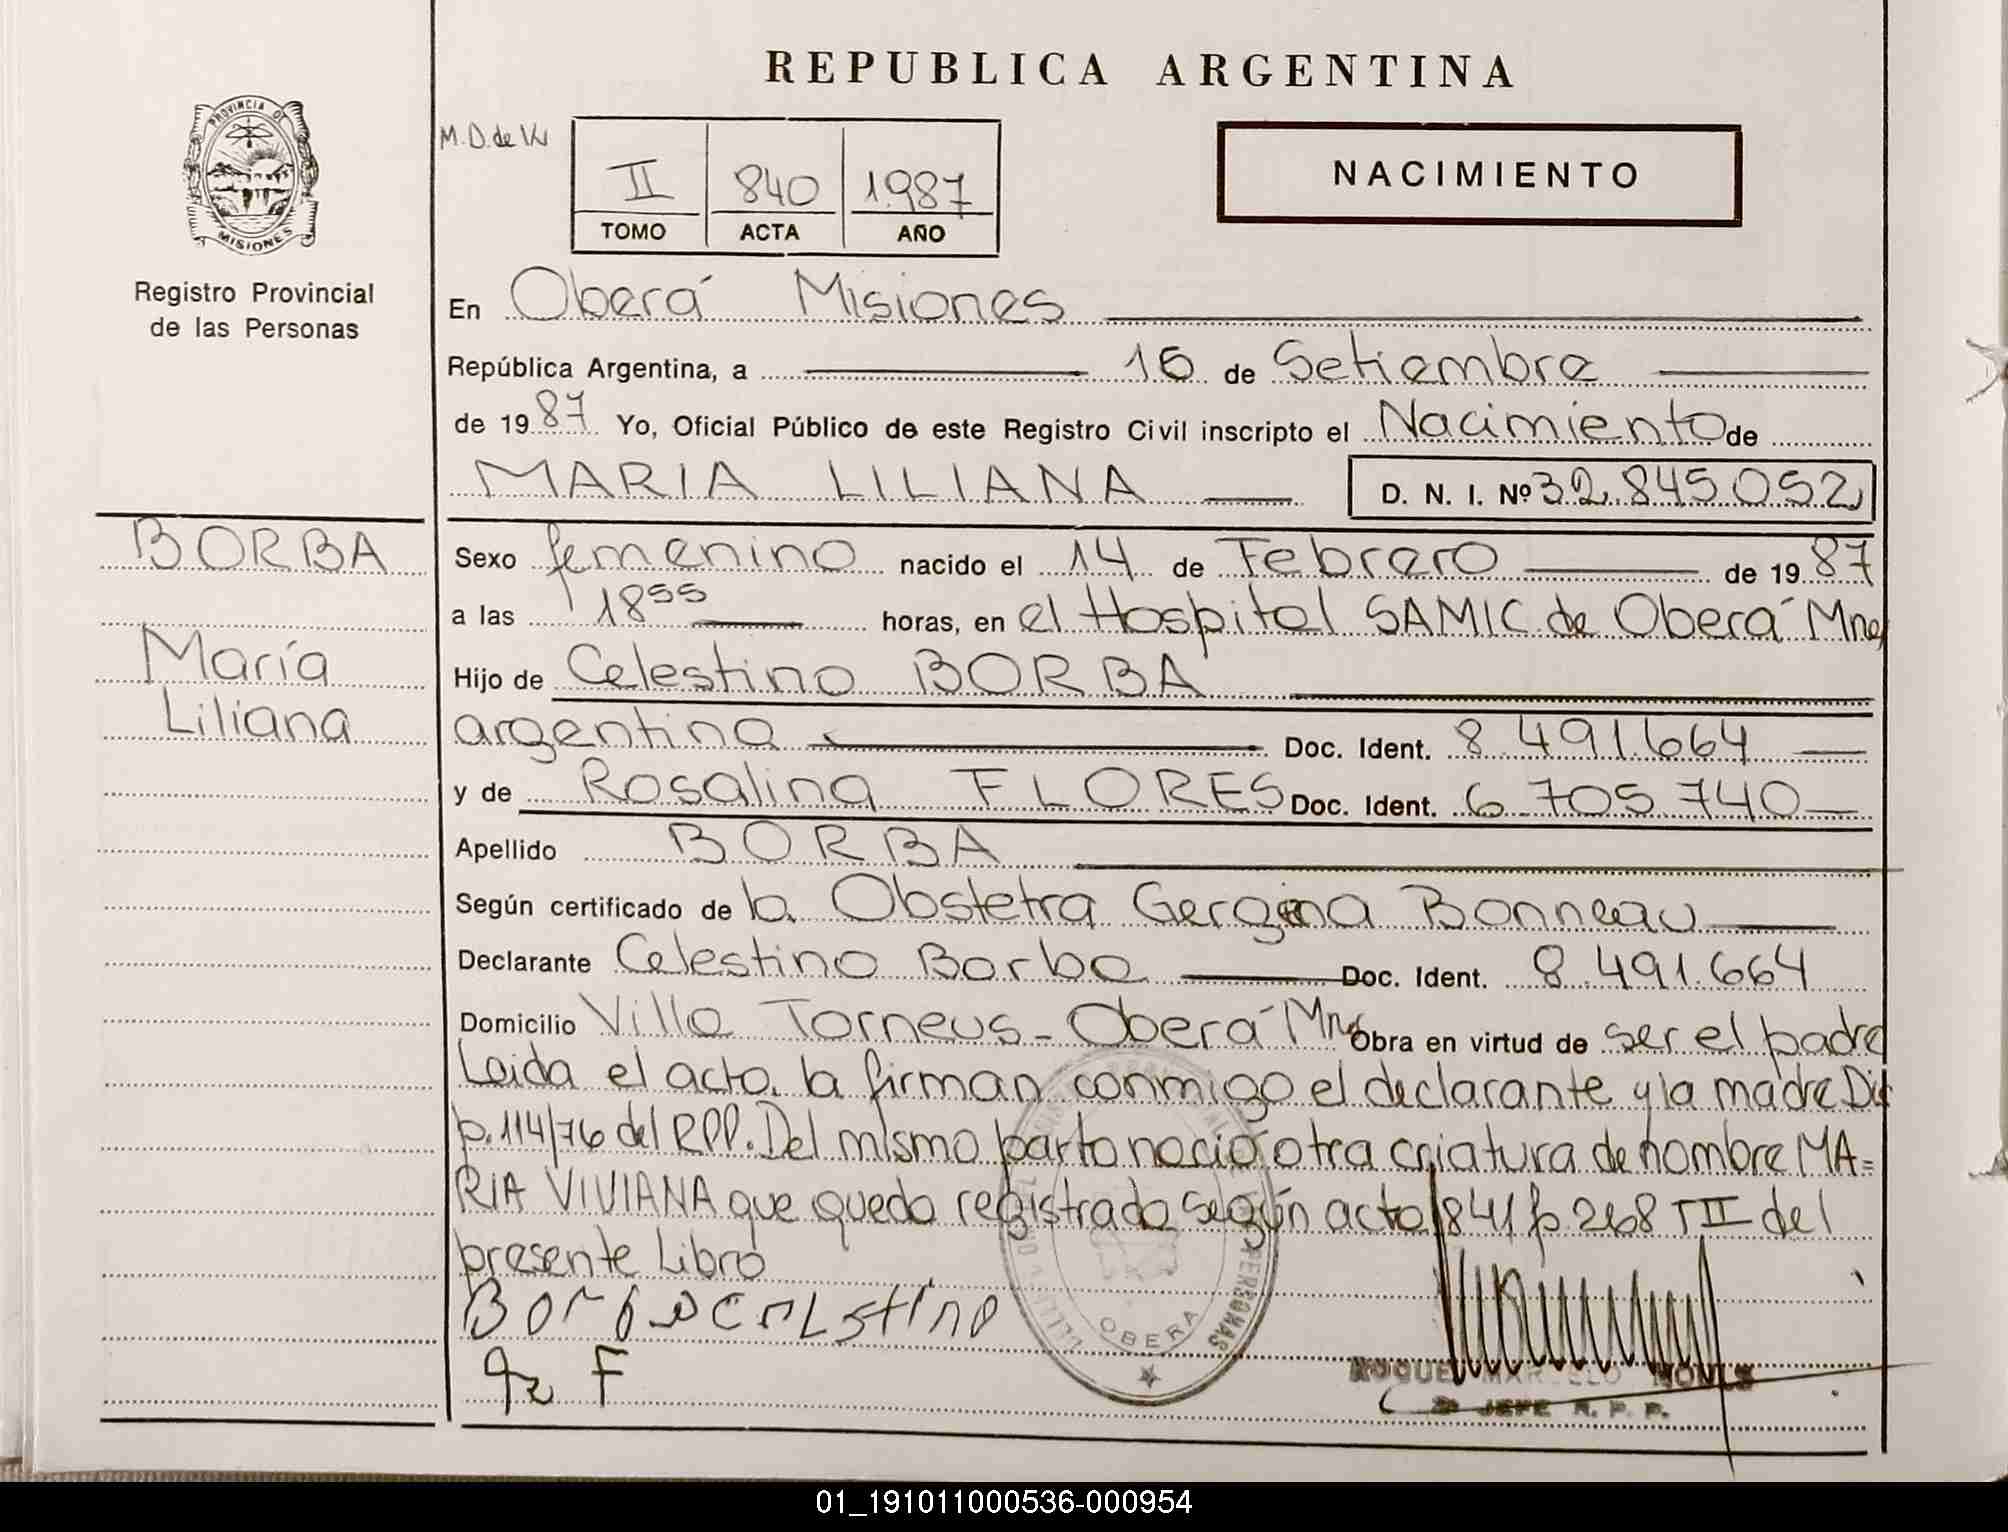 REPUBLICA ARGENTINA
PROVINCIA D
MISIONES
Registro Provincial
de las Personas
M.D. de
II 840 1987
TOMO ACTA AÑO
NACIMIENTO
En Oberá Misiones
República Argentina, a 16 de Setiembre
de 1987 Yo, Oficial Público de este Registro Civil inscripto el Nacimiento de
MARIA LILIANA D. N. I. Nº 32.845.052
BORBA
María
Liliana
Sexo femenino nacido el 14 de Febrero de 1987
a las 18⁵⁵ horas, en el Hospital SAMIC de Oberá Mnes
Hijo de Celestino BORBA
argentino Doc. Ident. 8.491.664
y de Rosalina FLORES Doc. Ident. 6.705.740
Apellido BORBA
Según certificado de la Obstetra Bonneau
Declarante Celestino Borba Doc. Ident. 8.491.664
Domicilio Villa Torneus - Oberá Mnes Obra en virtud de ser el padre
Leida el acta la firman conmigo el declarante y la madre Dis
p. 114/76 del RPP. Del mismo parto nació otra criatura de nombre MA=
RIA VIVIANA que queda registrada según acta 841 fº 268 T II del
presente Libro
Borba Celestino
F
PERSONAS
OBERA
ROQUE MARCELO
2º JEFE R. P. P.
01_191011000536-000954